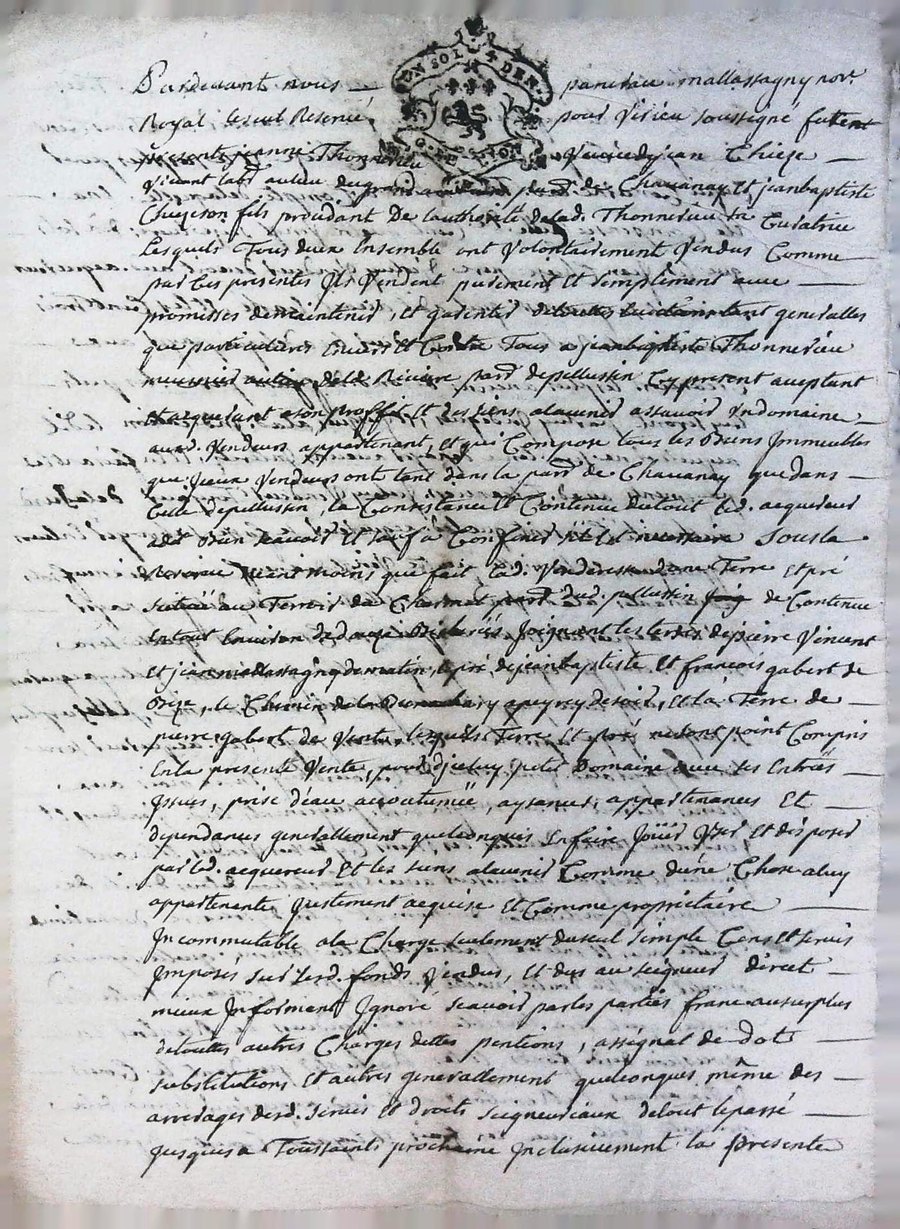 UN SOL 4 DEN.
G. DE LYON
Pardevant nous pancrau mallassagny nore
Royal Le seul Reservé pour Virieu soussigné furent
presents jeanne Thonnerieu Veuve djean Chieze
Vivant labr au lieu du grand parsse de Chavanay et jeanbaptiste
Chieze son fils procedant De lauthorité delad. Thonnerieu sa Curatrice
Lesquels Tous deux Ensemble ont Volontairement Vendus Comme
par Ces presentes Ils Vendent purement et simplement avec
promesses de maintenir, et garentir de touttes generalles
que particulieres Envers et Contre Tous a jeanbaptiste Thonnerieu
de la Riviere parsse depellussin Cy present aceptant
et acquerant a son proffit et des siens alavenir assavoir Un domaine
aux d. Vendeurs appartenant, et qui Compose tous les Biens Immeubles
que jceux Vendeurs ont tant dans la parsse de Chavanay que dans
Celle depellussin, la Consistance et Contenue dutout led. acquereur
a dit Bien scavoir et sauf à Confiner sil Est necessaire Sous la
Reserve neantmoins que fait lad. Venderesse dune Terre et pré
scitués au Terroir du Charmet dud. pellussin de Contenue
Entout Environ de deux Bicherées, Joignant les terres de pierre Vincent
et jean mallassagny de matin, le pré de jeanbaptiste et francois gabert de
Bize, le Chemin de la a peyrey de soir, et la Terre de
pierre gabert de Vent, lesquels Terre et pré ne sont point Compris
En la presente Vente, pour djceluy petit Domaine avec ses Entrées
Issues, prise d'eau accoutumée, aysances, appartenances Et
dependances generallement quelconques En faire Jouir User et disposer
par led. acquereur et les siens alavenir Comme dune Chose aluy
appartenante justement acquise et Comme propriétaire
Incommutable ala Charge seulement du seul simple Cens et servis
Imposés sur lesd. fonds Vendus, et dus au seigneur direct
mieux Informent Ignoré scavoir par les parties franc au surplus
detouttes autres Charges dettes pentions, assignal de dot
substitutions et autres generallement quelconques même des
arrerages desd. servis et droits seigneuriaux detout le passé
jusques a Toussaints prochaine Inclusivement la presente